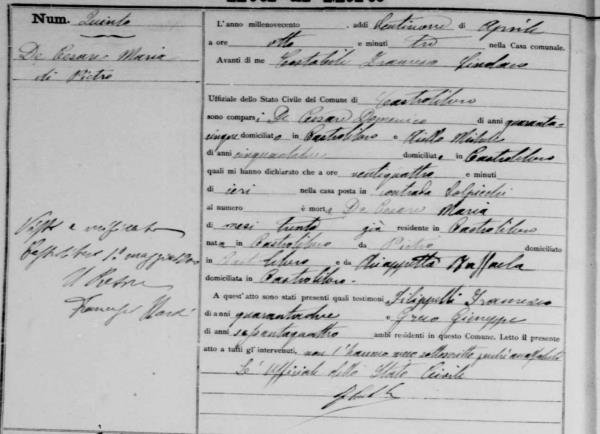 Num. Quinto
De Cesare Maria
di Pietro
L'anno millenovecento , addì ventinove di Aprile
a ore otto e minuti tre nella Casa comunale.
Avanti di me Costabile Francesco Sindaco
Uffiziale dello Stato Civile del Comune di Castrolibero
sono comparsi De Cesare Domenico di anni quaranta-
cinque domiciliato in Castrolibero e Aiello Michele
di anni domiciliato in Castrolibero
quali mi hanno dichiarato che a ore ventiquattro e minuti
di ieri nella casa posta in contrada
al numero è morta De Cesare Maria
di mesi trenta già residente in Castrolibero
nata in Castrolibero da Pietro domiciliato
in Castrolibero e da Chiappetta Raffaela
domiciliata in Castrolibero.
A quest'atto sono stati presenti quali testimoni Filippelli Francesco
di anni quarantadue e Greco Giuseppe
di anni sessantaquattro ambi residenti in questo Comune. Letto il presente
atto a tutti gl'intervenuti, non l'hanno meco sottoscritto perché analfabeti
L'Uffiziale dello Stato Civile
Visto e verificato
Castrolibero 1° maggio
Il Pretore
Francesco